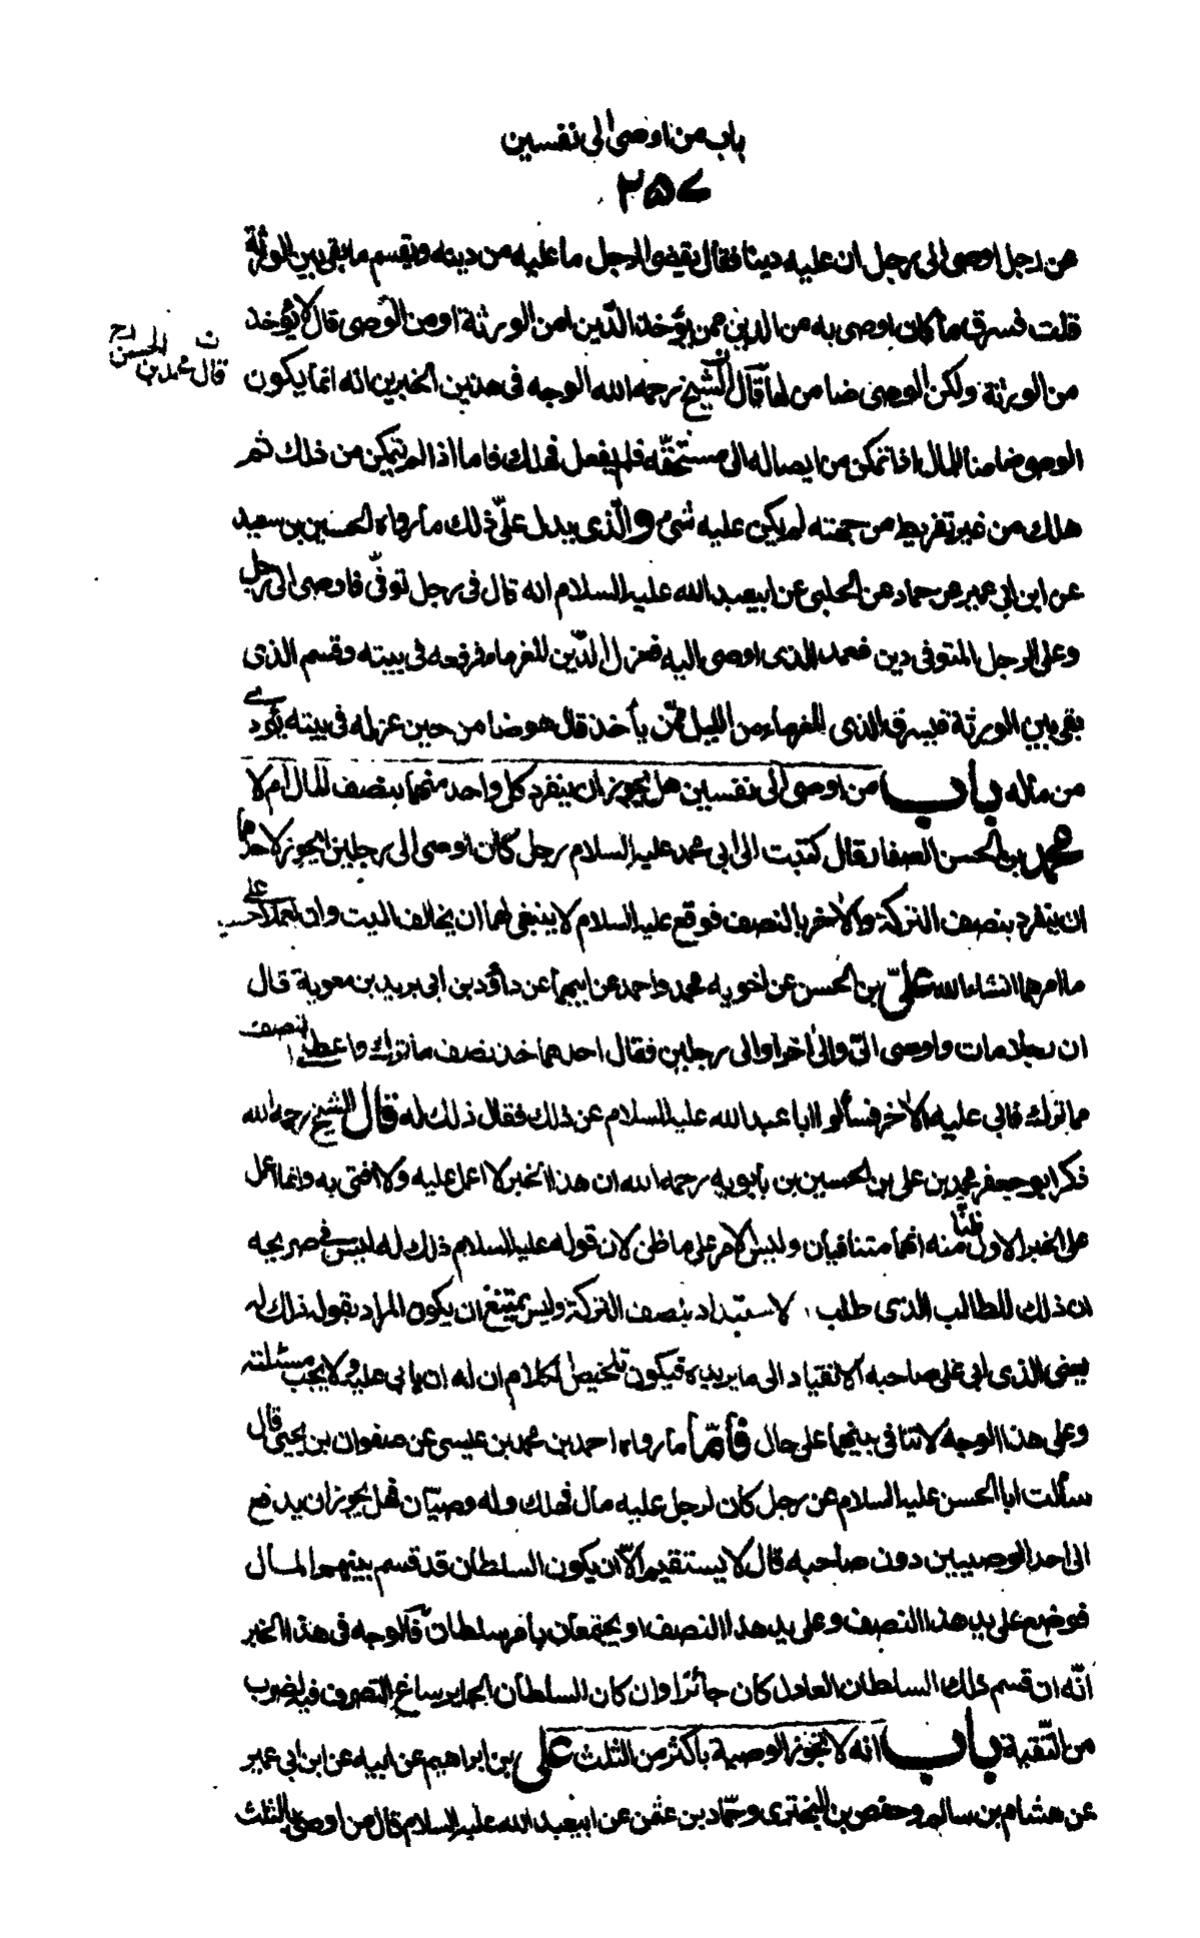 باب من اوصى الى نفسين
٢٥٧
عن رجل اوصى الى رجل ان عليه دينا فقال يقضى الرجل ما عليه من دينه ويقسم ما بقى بين الورثة
قلت فسرق ما كان اوصى به من الدين ممن يؤخذ الدّين امن الورثة او من الوصى قال لا يؤخذ
من الورثة ولكن الوصى ضامن لها قال الشيخ رحمه الله الوجه فى هذين الخبرين انه انما يكون
قال محمد بن الحسن
الوصى ضامنا للمال اذا تمكن من ايصاله الى مستحقّه فلم يفعل فهلك فاما اذا لم يتمكن من ذلك ثم
هلك من غير تفريط من جهته لم يكن عليه شئ والّذى يدل على ذلك ما رواه الحسين بن سعيد
عن ابن ابى عمير عن حماد عن الحلبى عن ابيعبد الله عليه السلام انه قال فى رجل توفّى فاوصى الى رجل
وعلى الرجل المتوفى دين فعمد الذى اوصى اليه فعزل الدّين للغرماء فرفعه فى بيته وقسم الذى
بقى بين الورثة فيسرق الذى للغرماء من الليل ممّن يأخذ قال هو ضامن حين عزله فى بيته يؤدى
من ماله باب من اوصى الى نفسين هل يجوز ان ينفرد كل واحد منهما بنصف المال ام لا
محمد بن الحسن الصفار قال كتبت الى ابى محمد عليه السلام رجل كان اوصى الى رجلين ايجوز لاحدهما
ان ينفرد بنصف التركة والاخر بالنصف فوقع عليه السلام لا ينبغى لهما ان يخالف الميت وان يعملا على حسب
ما امرهما انشاء الله علىّ بن الحسن عن اخويه محمد واحمد عن ابيهما عن داؤد بن ابى يزيد بن معوية قال
ان رجلا مات واوصى الىّ والى اخر او الى رجلين فقال احدهما خذ نصف ما ترك واعطنى النصف
مما ترك فابى عليه الاخر فسألوا ابا عبد الله عليه السلام عن ذلك فقال ذلك له قال الشيخ رحمه الله
ذكر ابو جعفر محمد بن على بن الحسين بن بابويه رحمه الله ان هذا الخبر لا اعمل عليه ولا افتى به وانما اعمل
على الخبر الاول ظنّا منه انهما متنافيان وليس الامر على ما ظن لان قوله عليه السلام ذلك له ليس فى صريحه
ان ذلك للطالب الذى طلب الاستبداد بنصف التركة وليس يمتنع ان يكون المراد بقوله ذلك له
يعنى الذى ابى على صاحبه الانقياد الى ما يريده فيكون تلخيص الكلام ان له ان يابى عليه ولا يجب مسئلته
وعلى هذا الوجه لا تنافى بينهما على حال فأمّا ما رواه احمد بن محمد بن عيسى عن صفوان بن يحيى قال
سألت ابا الحسن عليه السلام عن رجل كان لرجل عليه مال فهلك وله وصيّان فهل يجوز ان يدفع
الى احد الوصيين دون صاحبه قال لا يستقيم الّا ان يكون السلطان قد قسم بينهم المال
فوضع على يد هذا النصف وعلى يد هذا النصف او يجتمعان بامر سلطان فالوجه فى هذا الخبر
انّه ان قسم ذلك السلطان العادل كان جائزا وان كان السلطان الجماير ساغ التصرف فيه لضرب
من التّقية باب انه لا تجوز الوصية باكثر من الثلث على بن ابراهيم عن ابيه عن ابن ابى عمير
عن هشام بن سالم وحفص بن البخترى وحمّاد بن عثمن عن ابيعبد الله عليه السلام قال من اوصى بالثلث